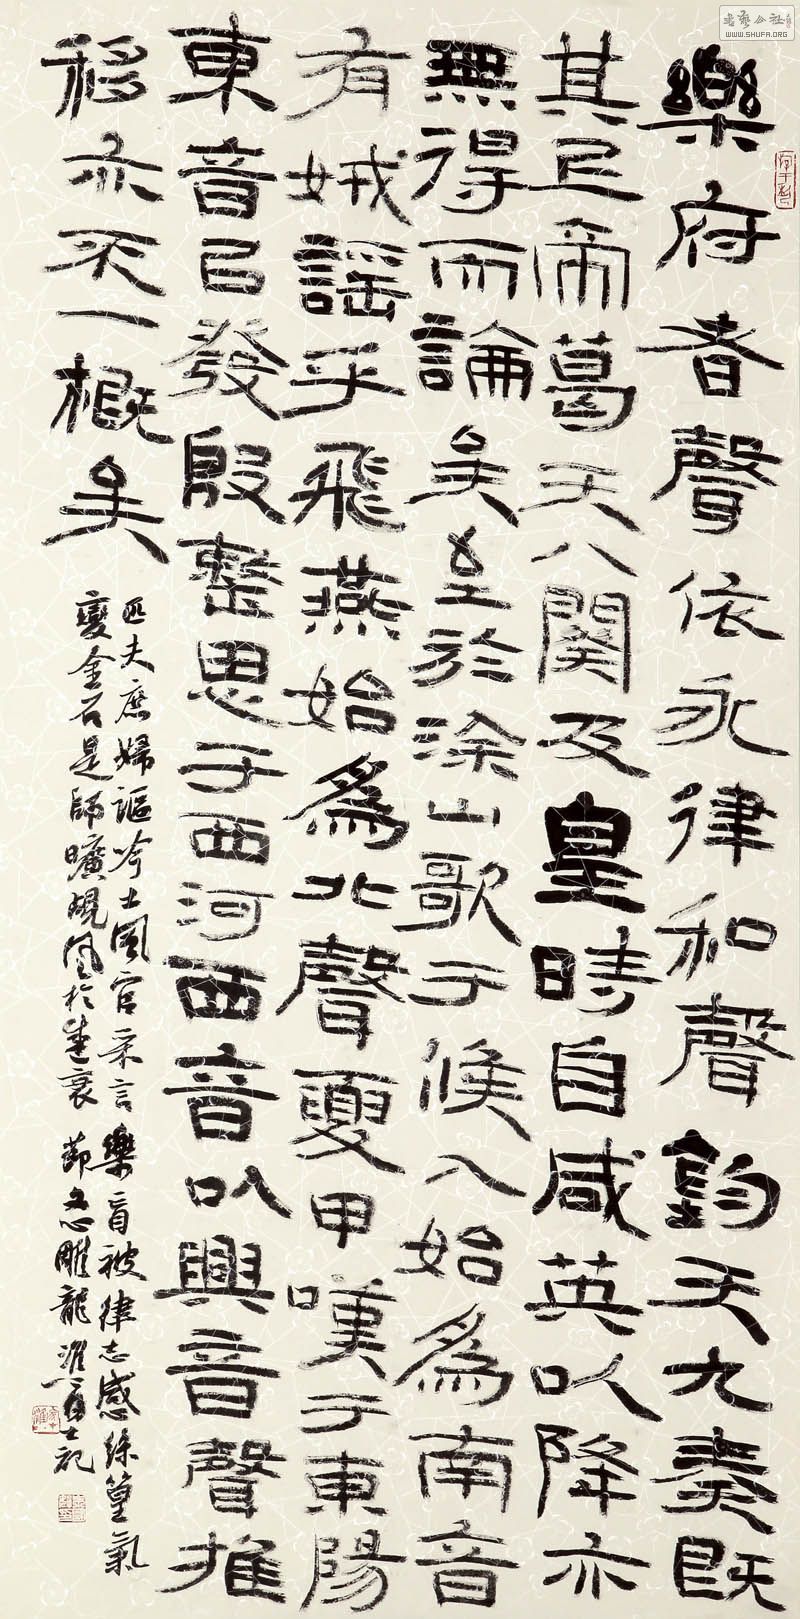 樂府者聲依永律和聲鈞天九奏既
其上帝葛天八闋及皇時自咸英以降亦
無得而論矣至於涂山歌于候人始為南音
有娀謠乎飛燕始為北聲夏甲嘆于東陽
東音㠯發殷整思于西河西音以興音聲推
移亦不一概矣
匹夫庶婦謳吟土風官采言樂盲被律志感絲篁氣
變金石是師曠覘風於盛衰 節文心雕龍 士記
书艺公社
WWW.SHUFA.ORG